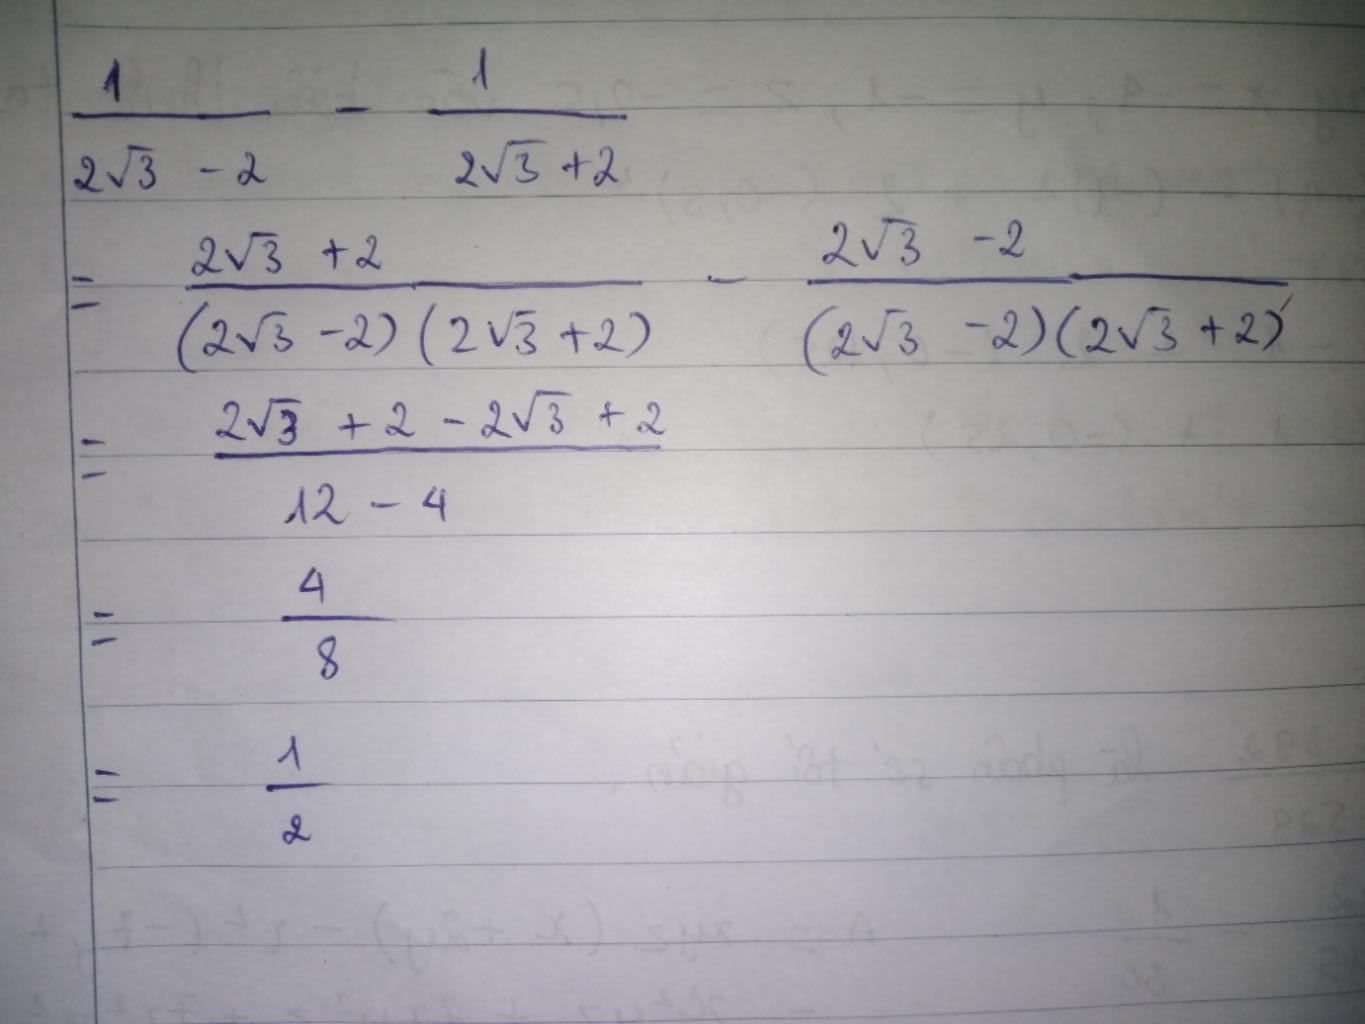 1/(2√3 - 2) - 1/(2√3 + 2)
= (2√3 + 2)/((2√3 - 2)(2√3 + 2)) - (2√3 - 2)/((2√3 - 2)(2√3 + 2))
= (2√3 + 2 - 2√3 + 2)/(12 - 4)
= 4/8
= 1/2